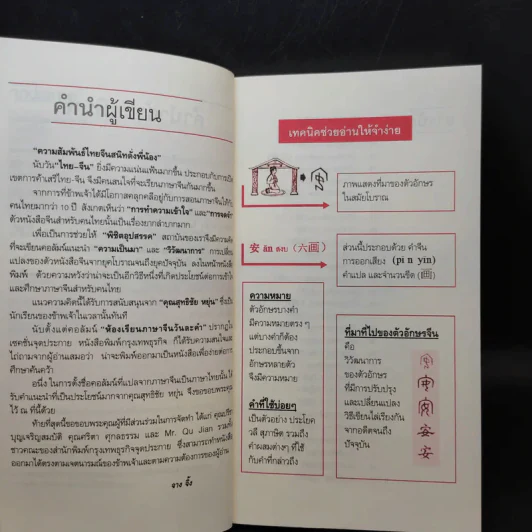 คำนำผู้เขียน
"ความสัมพันธ์ไทยจีนสนิทดั่งพี่น้อง"
นับวัน "ไทย-จีน" ยิ่งมีความแน่นแฟ้นมากขึ้น ประกอบกับการเปิด
เขตการค้าเสรีไทย-จีน จึงมีคนสนใจที่จะเรียนภาษาจีนกันมากขึ้น
จากการที่ข้าพเจ้าได้มีโอกาสคลุกคลีอยู่กับการสอนภาษาจีนให้กับ
คนไทยมากว่า 10 ปี สังเกตเห็นว่า "การทำความเข้าใจ" และ "การจดจำ"
ตัวหนังสือจีนสำหรับคนไทยนั้นเป็นเรื่องยากลำบากมาก
เพื่อเป็นการช่วยให้ "พิชิตอุปสรรค" สถาบันของเราจึงมีความคิด
ที่จะเขียนคอลัมน์แนะนำ "ความเป็นมา" และ "วิวัฒนาการ" การเปลี่ยน
แปลงของตัวหนังสือจีนจากยุคโบราณจนถึงยุคปัจจุบัน ลงในหน้าหนังสือ
พิมพ์ ด้วยความหวังว่าน่าจะเป็นอีกวิธีหนึ่งที่เกิดประโยชน์ต่อการเข้าใจ
และศึกษาภาษาจีนสำหรับคนไทย
แนวความคิดนี้ได้รับการสนับสนุนจาก "คุณสุทธิชัย หยุ่น" ซึ่งเป็น
นักเรียนของข้าพเจ้าในเวลานั้นทันที
นับตั้งแต่คอลัมน์ "ห้องเรียนภาษาจีนวันละคำ" ปรากฏใน
เซคชั่นจุดประกาย หนังสือพิมพ์กรุงเทพธุรกิจ ก็ได้รับความสนใจและ
ไถ่ถามจากผู้อ่านเสมอว่า น่าจะพิมพ์ออกมาเป็นหนังสือเพื่อง่ายต่อการ
ศึกษาค้นคว้า
อนึ่ง ในการตั้งชื่อคอลัมน์ที่แปลจากภาษาจีนเป็นภาษาไทยนั้น ได้
รับคำแนะนำที่เป็นประโยชน์มากจากคุณสุทธิชัย หยุ่น จึงขอขอบพระคุณ
ไว้ ณ ที่นี้ด้วย
ท้ายที่สุดนี้ขอขอบพระคุณผู้ที่มีส่วนร่วมในการจัดทำ ได้แก่
บุญเจริญสมบัติ คุณศริตา ศุกลธรรม และ Mr. Qu Jian รวมทั้ง
ชาวคณะของสำนักพิมพ์กรุงเทพธุรกิจจุดประกาย ซึ่งสามารถทำหนังสือ
ออกมาได้ตรงตามเจตนารมณ์ของข้าพเจ้าและตามความต้องการของผู้อ่าน
จาง จิ้ง
เทคนิคช่วยอ่านให้จำง่าย
ภาพแสดงที่มาของตัวอักษร
ในสมัยโบราณ
安 ān สงบ (六画)
ส่วนนี้ประกอบด้วย คำจีน
การออกเสียง (pi n yin)
คำแปล และจำนวนขีด (画)
ความหมาย
ตัวอักษรบางคำ
มีความหมายตรง ๆ
แต่บางคำก็ต้อง
ประกอบขึ้นจาก
อักษรหลายตัว
จึงมีความหมาย
คำที่ใช้บ่อยๆ
เป็นตัวอย่าง ประโยค
วลี สุภาษิต รวมถึง
คำผสมต่างๆ ที่ใช้
กับคำที่กล่าวถึง
ที่มาที่ไปของตัวอักษรจีน
คือ
วิวัฒนาการ
ของตัวอักษร
ที่มีการปรับปรุง
และเปลี่ยนแปลง
วิธีเขียนไล่เรียงกัน
จากอดีตจนถึง
ปัจจุบัน
安
安